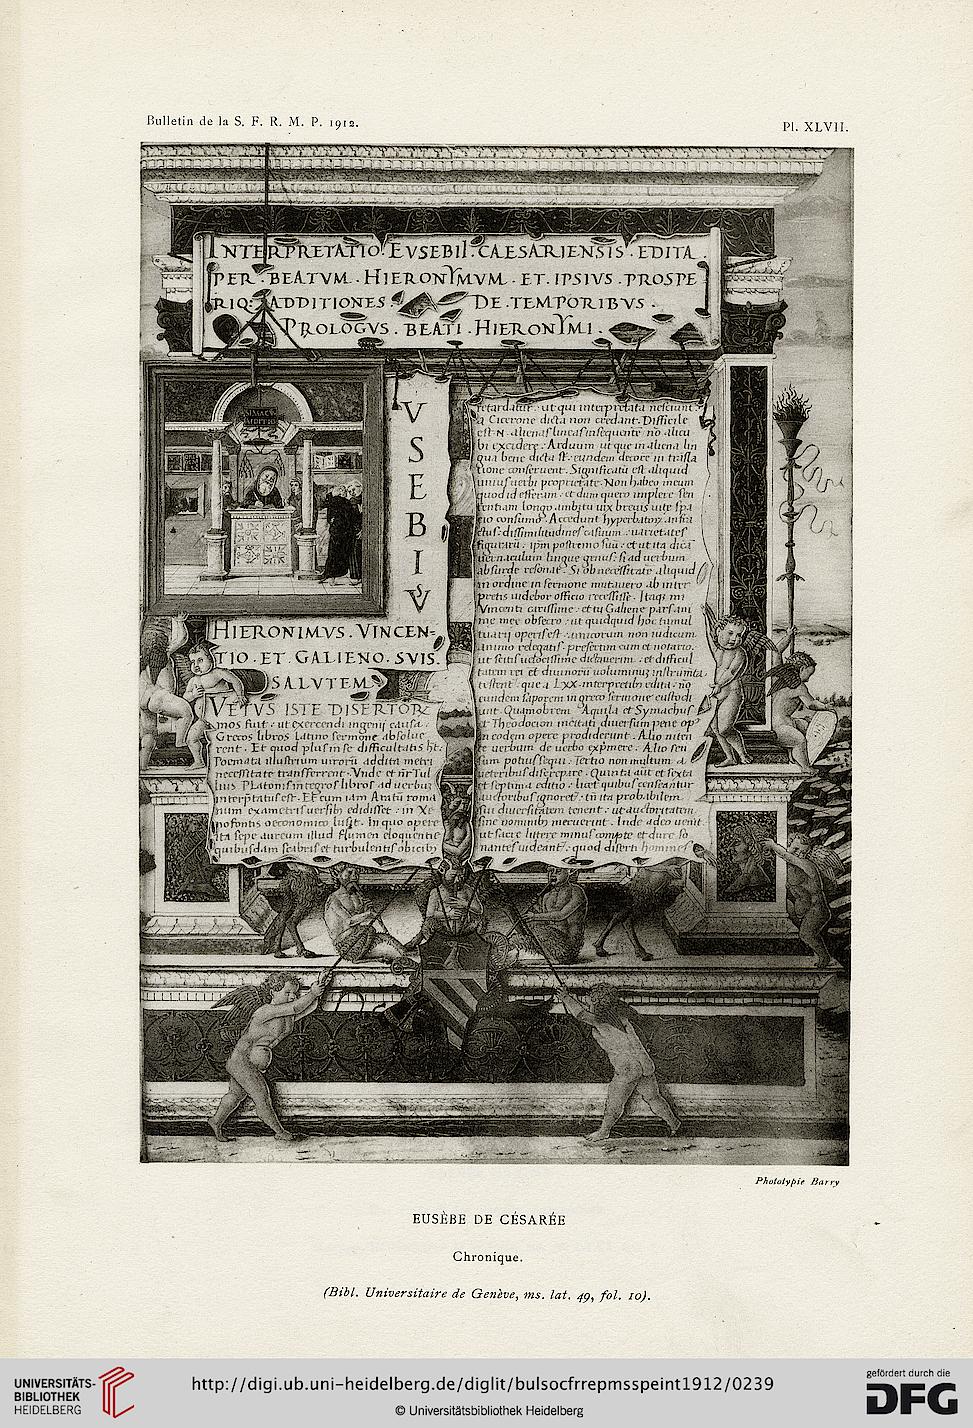 Bulletin de la S. F. R. M. P. 1912.
Pl. XLVII.
INTERPRETATIO. EVSEBII. CAESARIENSIS. EDITA.
PER. BEATVM. HIERONYMVM. ET. IPSIVS. PROSPE
RIQ: ADDITIONES: DE. TEMPORIBVS.
PROLOGVS. BEATI. HIERONYMI.
V
S
E
B
I
V
HIERONIMVS. VINCEN-
TIO. ET. GALIENO. SVIS.
SALVTEM
VETVS ISTE DISERTOR
mos fuit: ut exercendi ingenij causa.
Grecos libros Latino sermone absolue
rent. Et quod plus in se difficultatis ht:
Poemata illustrium virorū addita metri
necessitate transferrent. Vnde et nr̄ Tul
lius Platonis integros libros ad uerbuz
interpretatus est. Et cum iam Aratū roma
num exametris uersibꝫ edidisset: in Xe
nofontis oeconomico lusit. In quo opere
ita sepe aureum illud flumen eloquentie
quibusdam scabris et turbulentis obicibꝫ
retardatur: ut qui interpretata nesciunt:
a Cicerone dicta non credant. Difficile
est. N. alienas lineas insequente nō alicu
bi excidere: Arduum ut que in aliena lin
gua bene dicta st. eundem decore in trāsla
tione conseruent. Significatū est aliquid
unius uerbi proprietate. Non habeo meum
quod id efferam. et dum quero implere sen
tentiam longo ambitu uix breuis uite spa
cio consumo. Accedunt hyperbatoꝝ anfra
ctus: dissimilitudines casuum: uarietates
figurarū: ipm postremo suū: et ut ita dicā
uernaculum lingue genus: si ad uerbum
absurde resonat. Si ob necessitate aliquid
in ordine in sermone mutauero ab inter
pretis uidebor officio recessisse. Itaqꝫ mi
Vincenti carissime: et tu Galiene pars ani
me mee obsecro: ut quidquid hoc tumul
tuarij operis est: amicorum non iudicum
animo relegatis. presertim cum et notario.
ut scitis uelocissime dictauerim: et difficul
tatem rei et diuinorū uoluminuꝫ instrumēta
testent. que a LXX. interpretibꝫ edita: nō
eundem saporem in greco sermone custodi
unt. Quamobrem Aquila et Symachus
et Theodocion incitati diuersum pene op
in eodem opere prodiderunt. Alio niten
te uerbum de uerbo exprimere. Alio sen
sum potius sequi. Tertio non multum a
ueteribus discrepare. Quinta aut et sexta
et septima editio: licet quibus censeantur
auctoribus ignoret: tn ita probabilem
sui diuersitatem tenent: ut auctoritatem
sine nominibꝫ meruerint. Inde adeo uenit
ut sacre littere minus compte et dure so
nantes uideant. quod diserti homines
Phototypie Barry
EUSÈBE DE CÉSARÉE
Chronique.
(Bibl. Universitaire de Genève, ms. lat. 49, fol. 10).
UNIVERSITÄTS-
BIBLIOTHEK
HEIDELBERG
http://digi.ub.uni-heidelberg.de/diglit/bulsocfrrepmsspeint1912/0239
© Universitätsbibliothek Heidelberg
gefördert durch die
DFG